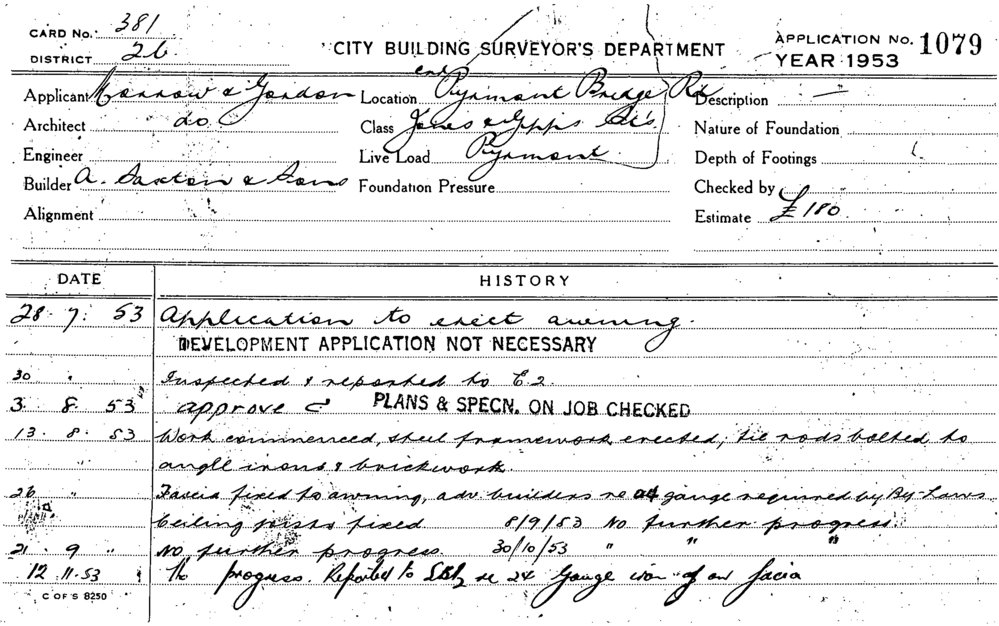 CARD No. 381
DISTRICT 26
CITY BUILDING SURVEYOR'S DEPARTMENT
APPLICATION No. 1079
YEAR 1953
Applicant Morrow & Gordon
Location cnr Pyrmont Bridge Rd
Description —
Architect do
Class Jones & Gipps Sts.
Nature of Foundation
Engineer
Live Load Pyrmont.
Depth of Footings
Builder A. Saxton & Sons
Foundation Pressure
Checked by
Alignment
Estimate £180.
DATE HISTORY
28. 7. 53 Application to erect awning.
DEVELOPMENT APPLICATION NOT NECESSARY
30 " Inspected & reported to C.2.
3. 8. 53 approve PLANS & SPECN. ON JOB CHECKED
13. 8. 53 Work commenced, steel framework erected, tie rods bolted to
angle irons & brickwork.
26 " Fascia fixed to awning, adv. builders re 24 gauge required by By-Laws
Ceiling joists fixed 8/9/53 No further progress.
21. 9 " No further progress. 30/10/53 " " "
12 11.53 No progress. Reported to re 24 Gauge iron on facia
C OF S 8250